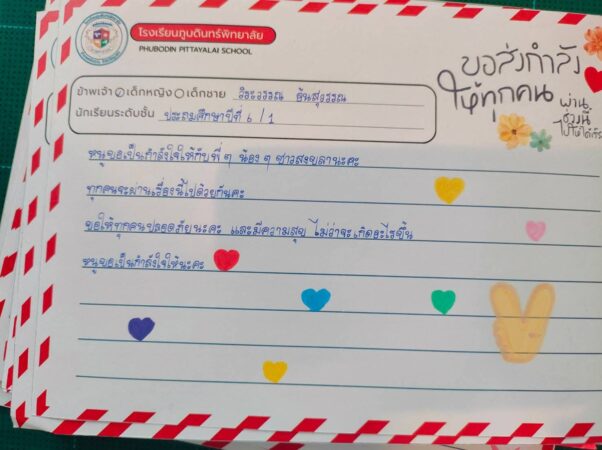 โรงเรียนภูบดินทร์พิทยาลัย
PHUBODIN PITTAYALAI SCHOOL
ขอส่งกำลัง
ให้ทุกคน
ผ่าน
ช่วงนี้
ไปให้ได้
ข้าพเจ้า เด็กหญิง เด็กชาย
นักเรียนระดับชั้น ประถมศึกษาปีที่ 6 / 1
หนูขอเป็นกำลังใจให้กับพี่ ๆ น้อง ๆ ชาวสงขลานะคะ
ทุกคนจะผ่านเรื่องนี้ไปด้วยกันคะ
ขอให้ทุกคนปลอดภัยนะคะ และมีความสุข ไม่ว่าจะเกิดอะไรขึ้น
หนูขอเป็นกำลังใจให้นะคะ